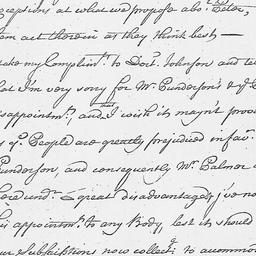 ceptions at what we propose abo.t Peter,
em act therein as they think best —
ake my Complim.ts to Doct. Johnson and te
at I'm very sorry for Mr. Punderson's & ye
isappointm.t, and wish it mayn't prove
s ye People are greatly prejudiced in fav.
Punderson, and consequently Mr. Palmer
here und.r great disadvantages,
his appointm.t to any Body, lest it should
ur Subscriptions now collect.g to accommo